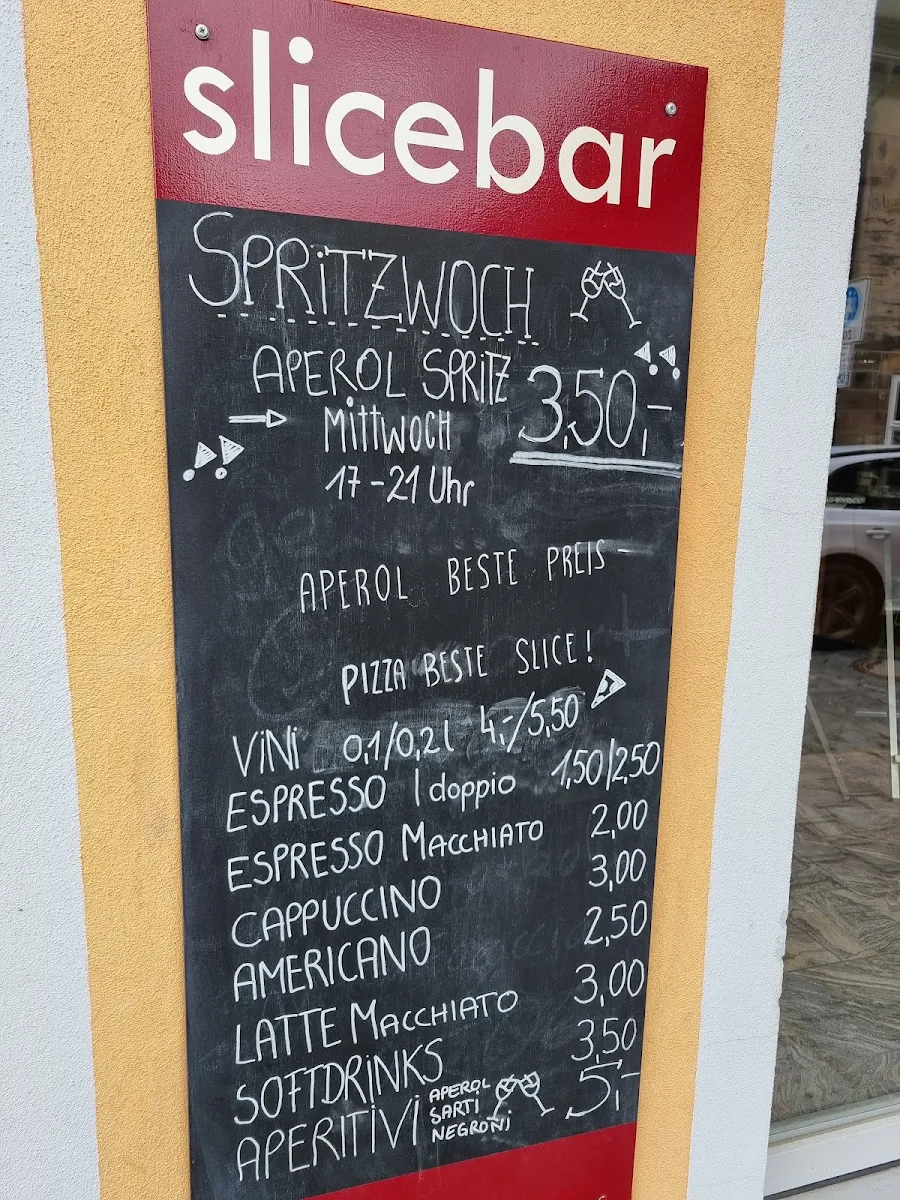 slicebar
SPRiTZWOCH
APEROL SPRiTZ 3,50,-
MiTTWOCH
17-21 Uhr
APEROL BESTE PREIS
PIZZA BESTE SLICE!
ViNi 0,1/0,2l 4,-/5,50
ESPRESSO | doppio 1,50|2,50
ESPRESSO MACCHIATO 2,00
CAPPUCCINO 3,00
AMERICANO 2,50
LATTE MACCHIATO 3,00
SOFTDRiNKS 3,50
APERITIVI APEROL SARTI NEGRONi 5,-